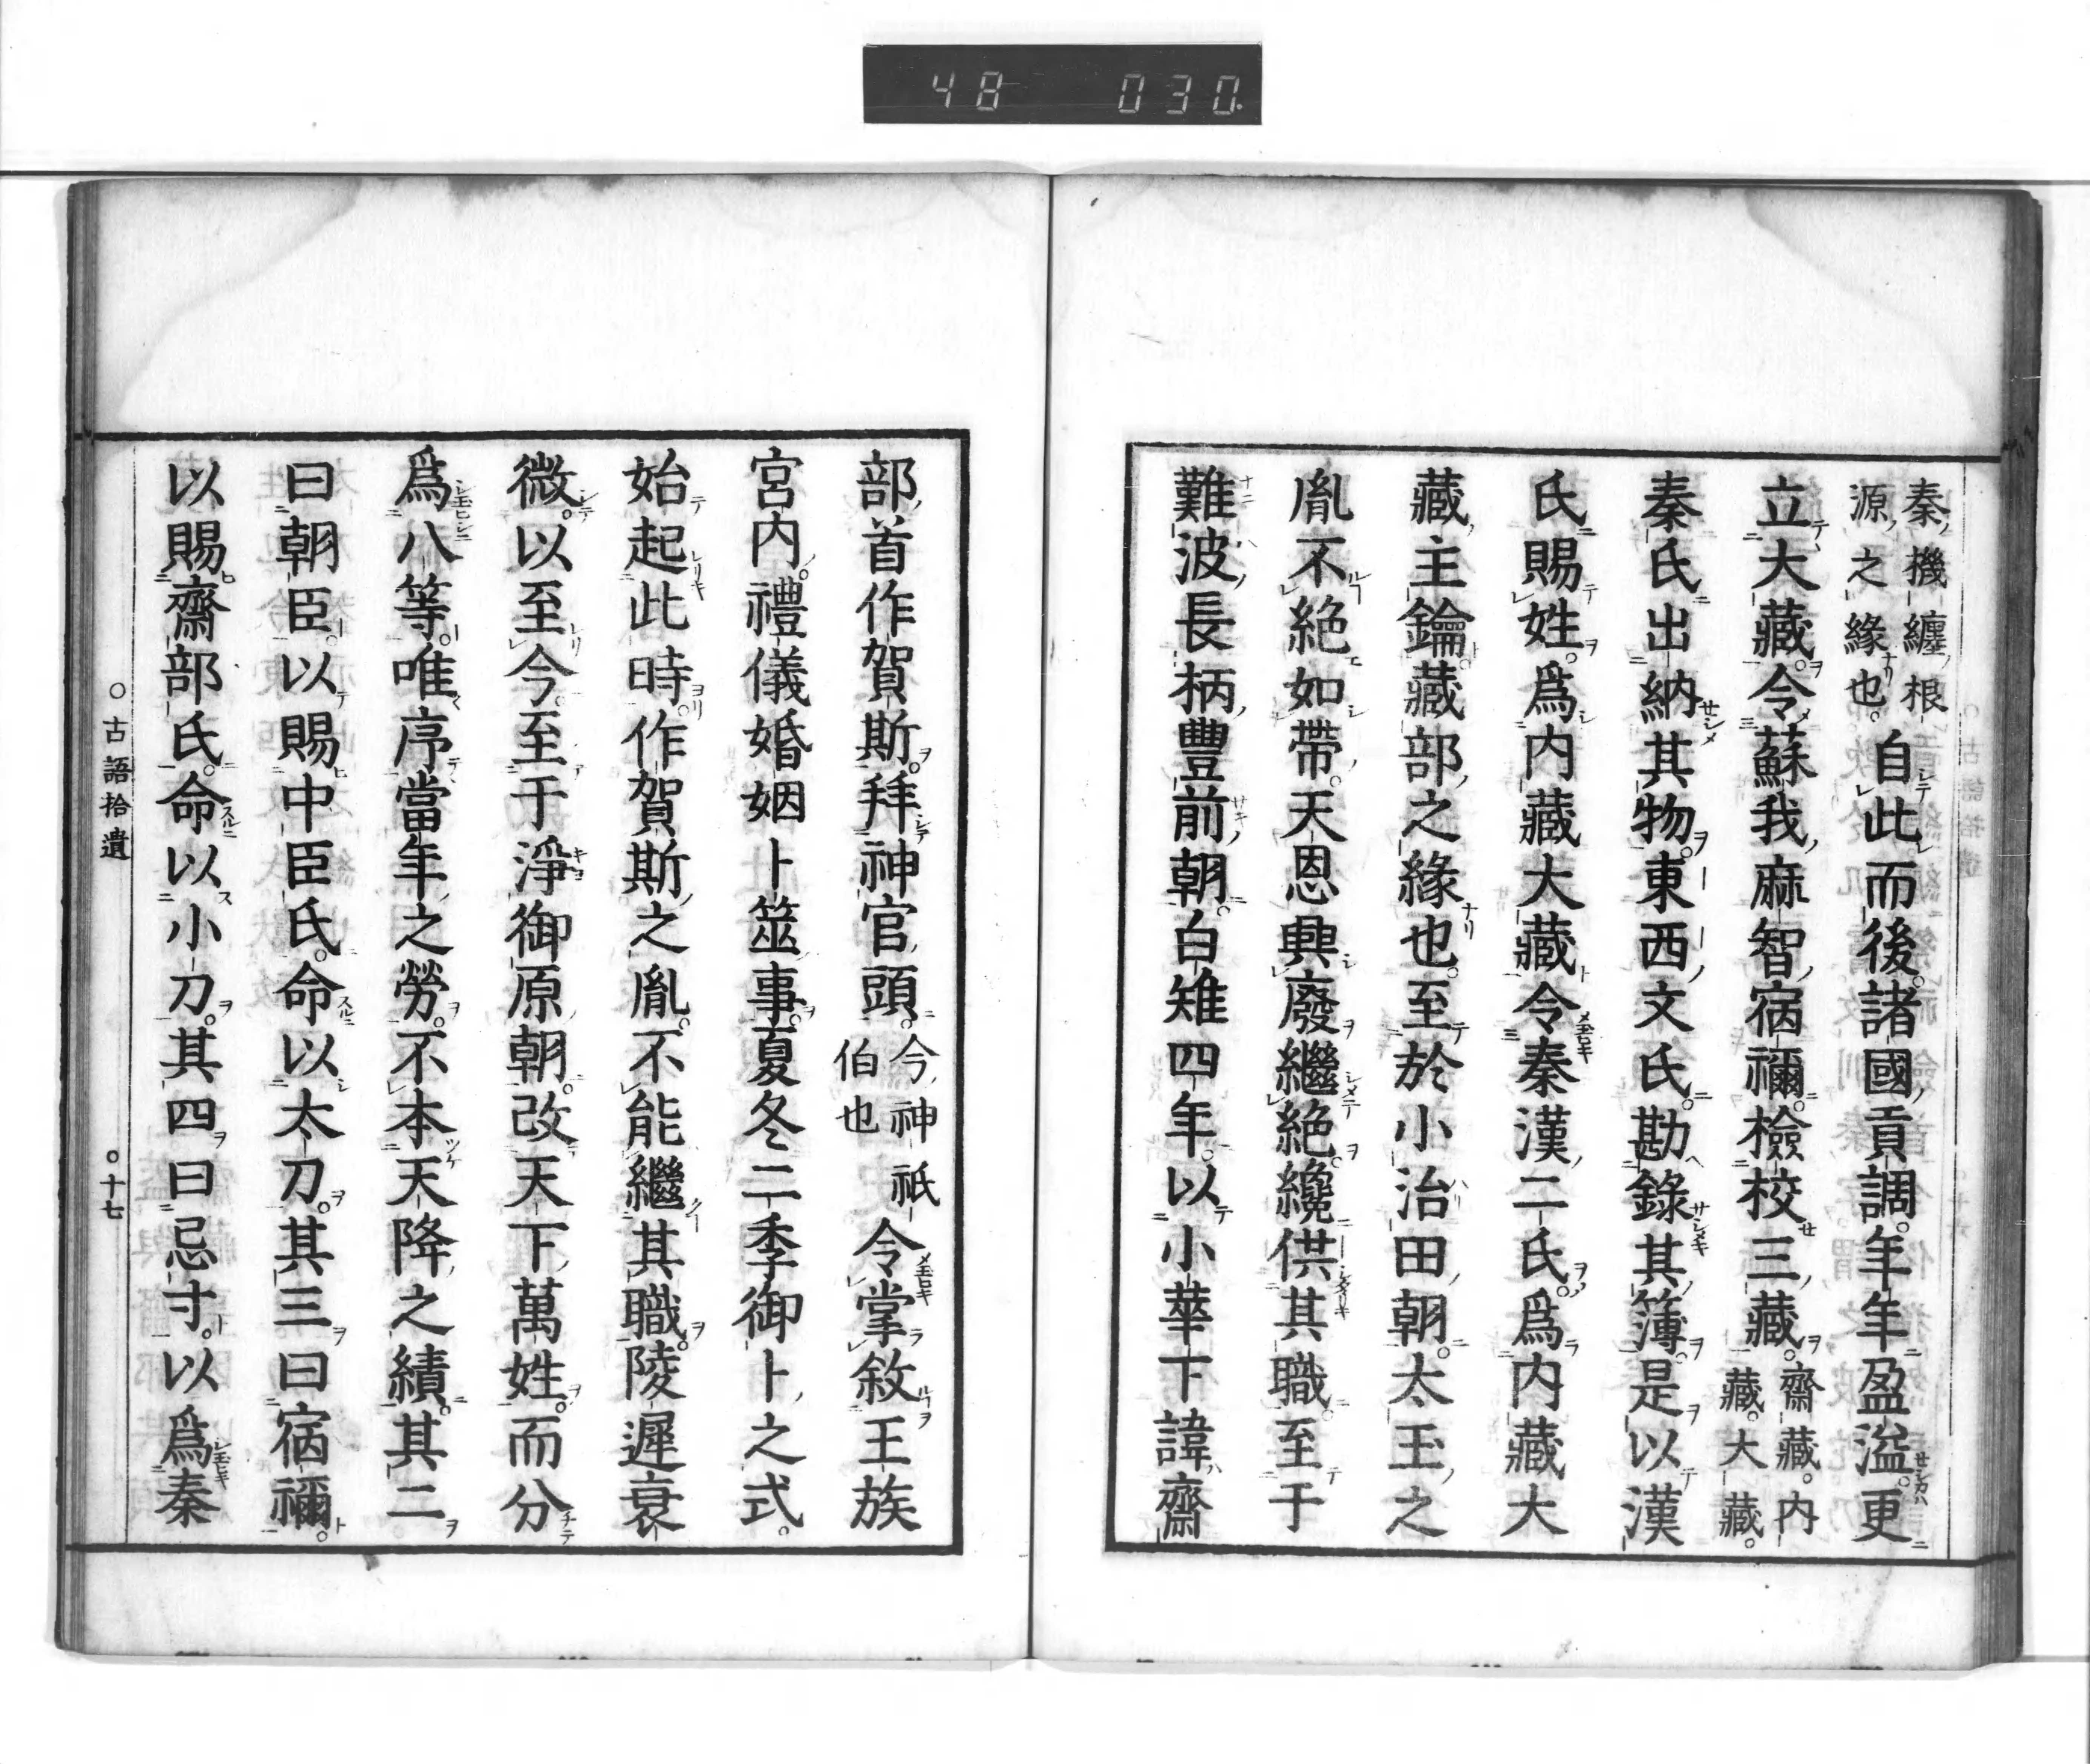 48 030
秦機纏根
源之縁也。
自此而後。諸國貢調。年年盈溢。更
立大藏。令蘇我麻智宿禰。檢校三藏。
齋藏。内
藏。大藏。
秦氏出納其物。東西文氏。勘錄其簿。是以漢
氏賜姓。爲内藏大藏令秦漢二氏。爲内藏大
藏主鑰藏部之緣也。至於小治田朝。太玉之
胤不絶如帶。天恩興廢繼絶。纔供其職。至于
難波長柄豊前朝。白雉四年。以小華下諱齋
部首作賀斯。拜神官頭。
今神祇
伯也
令掌敘王族
宮内。禮儀婚姻卜筮事。夏冬二季御卜之式。
始起此時。作賀斯之胤。不能繼其職。陵遲衰
微。以至今。至于淨御原朝。改天下萬姓。而分
爲八等。唯序當年之勞。不本天降之績。其二
曰朝臣。以賜中臣氏。命以太刀。其三曰宿禰。
以賜齋部氏。命以小刀。其四曰忌寸。以爲秦
○古語拾遺
○十七